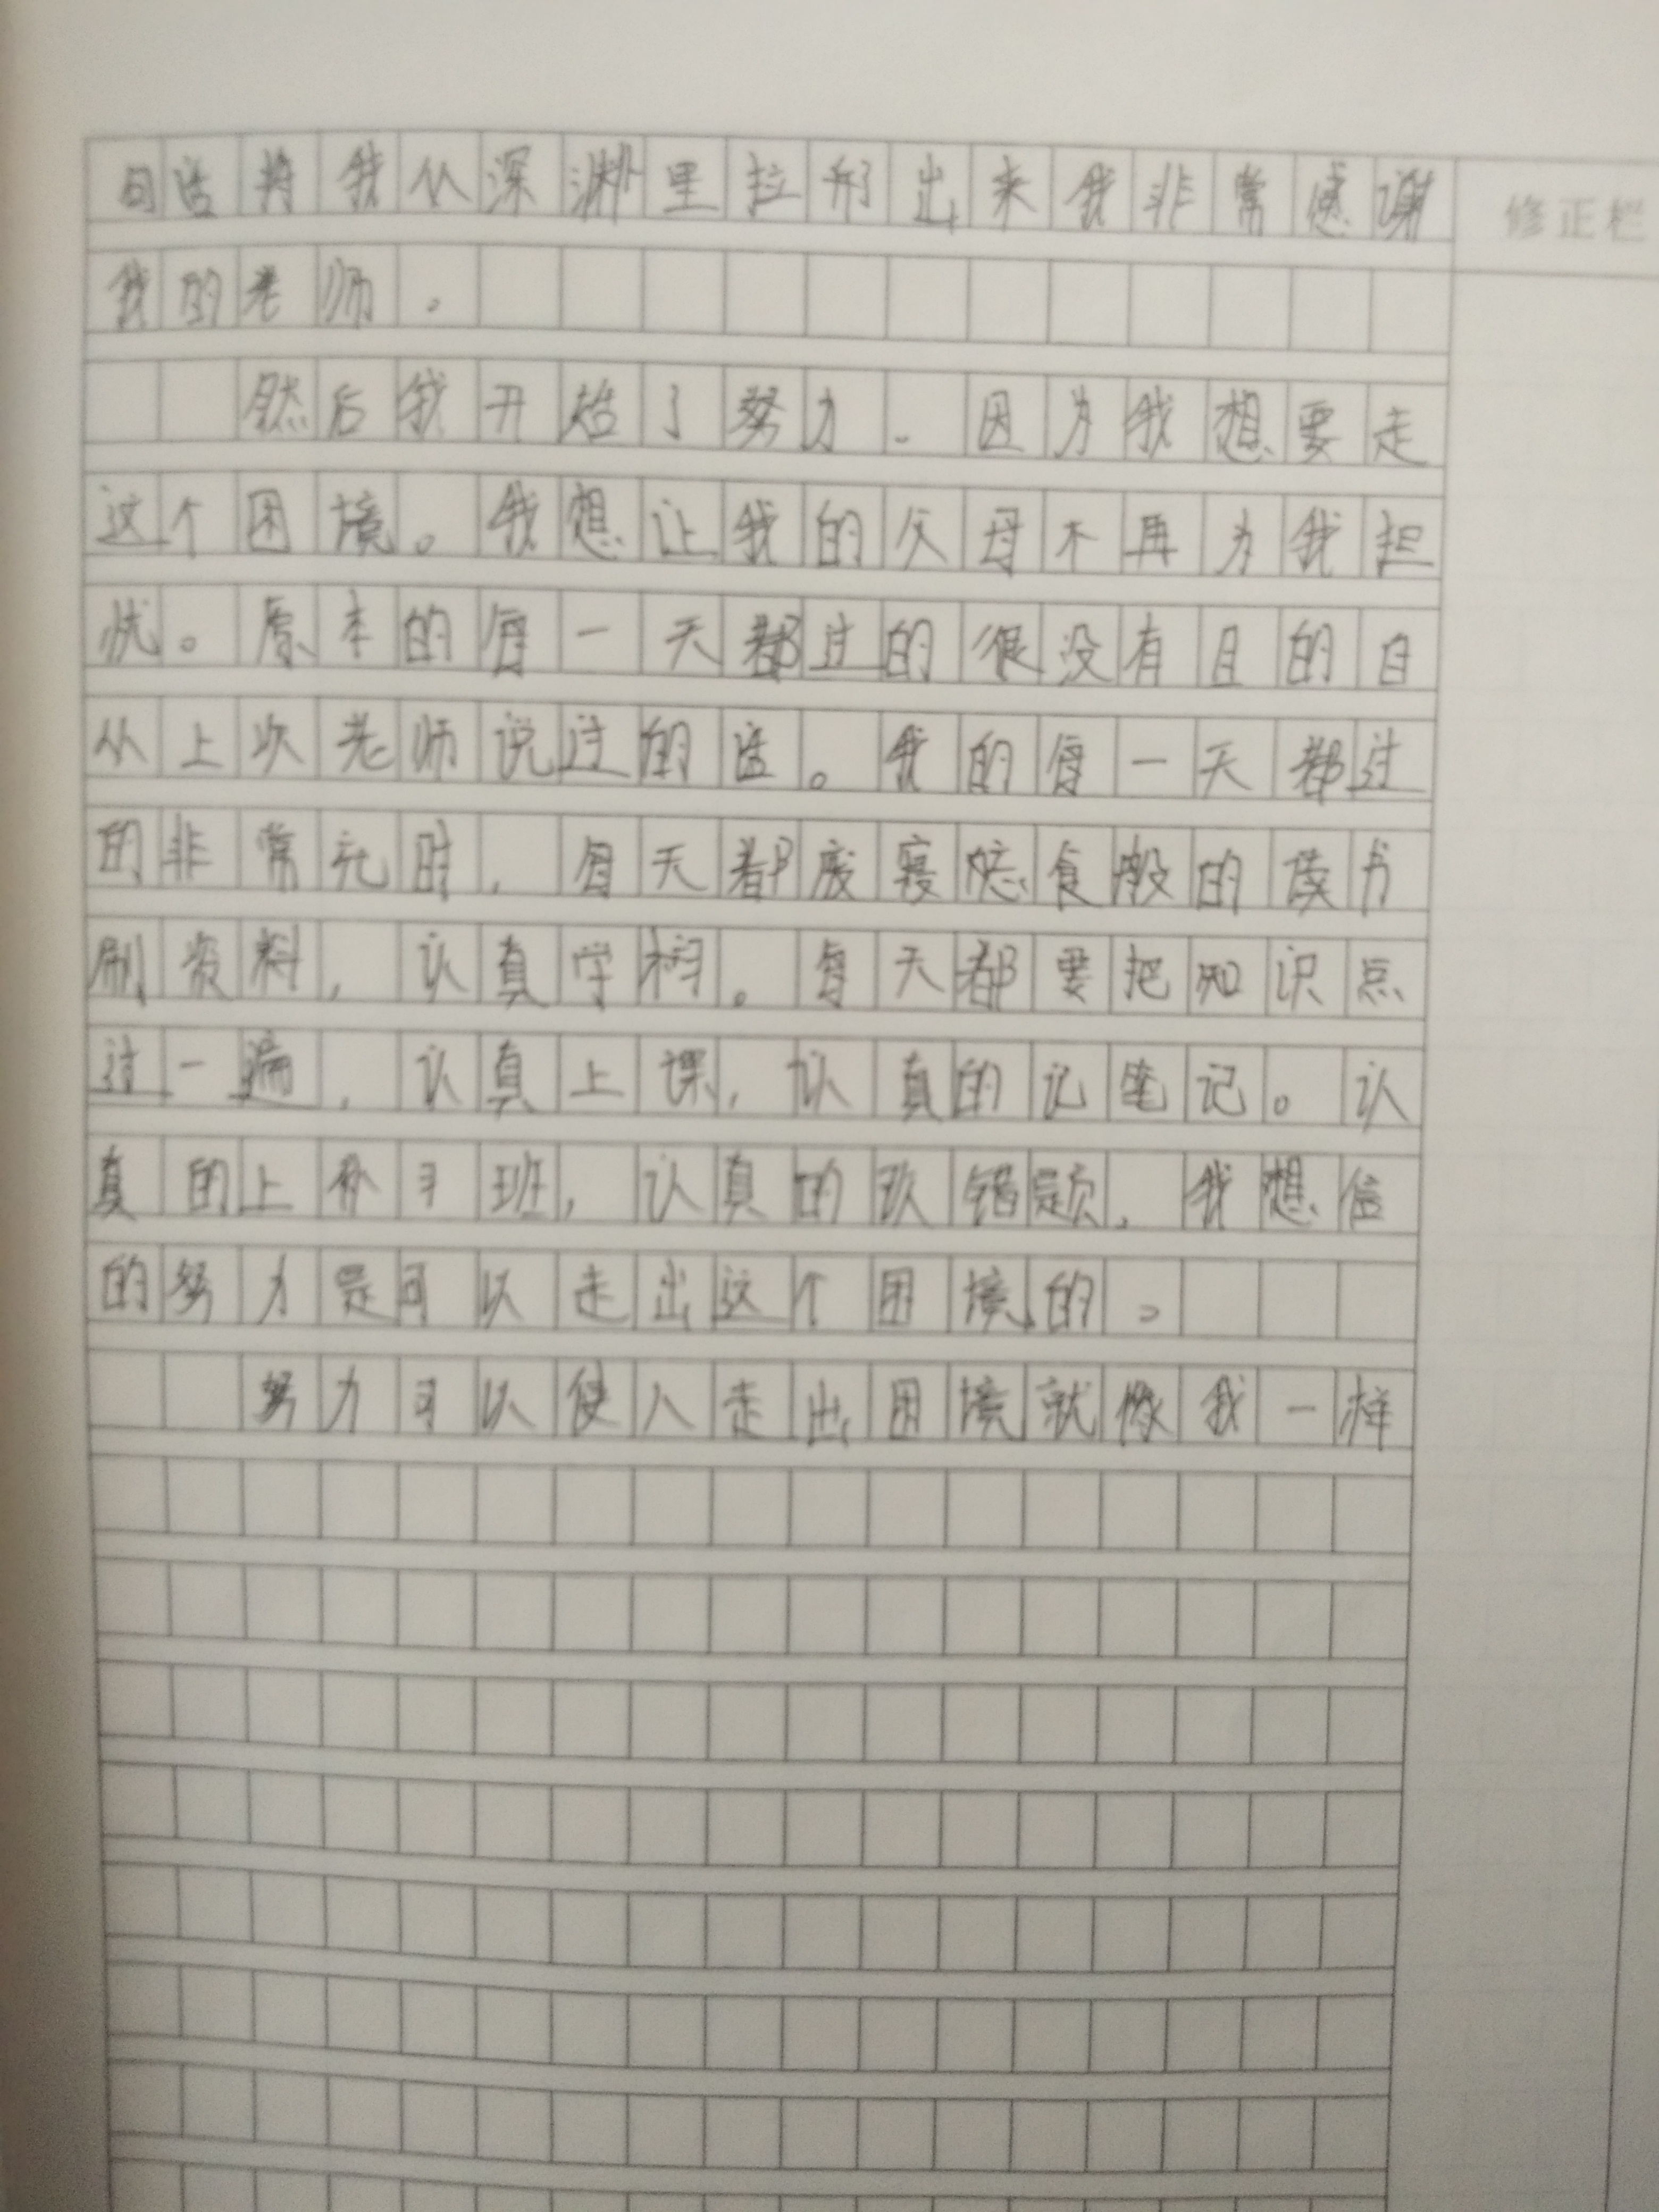 句话将我从深渊里拉出来我非常感谢
修正栏
我的老师。
然后我开始了努力。因为我想要走
这个困境。我想让我的父母不再为我担
忧。原本的每一天都过的很没有且的自
从上次老师说过的话。我的每一天都过
的非常充时，每天都废寝忘食般的读书
刷资料，认真学。每天都要把知识点
过一遍，认真上课，认真的记笔记。认
真的上补习班，认真的改错题，我想信
的努力是可以走出这个困境的。
努力可以使人走出困境就像我一样